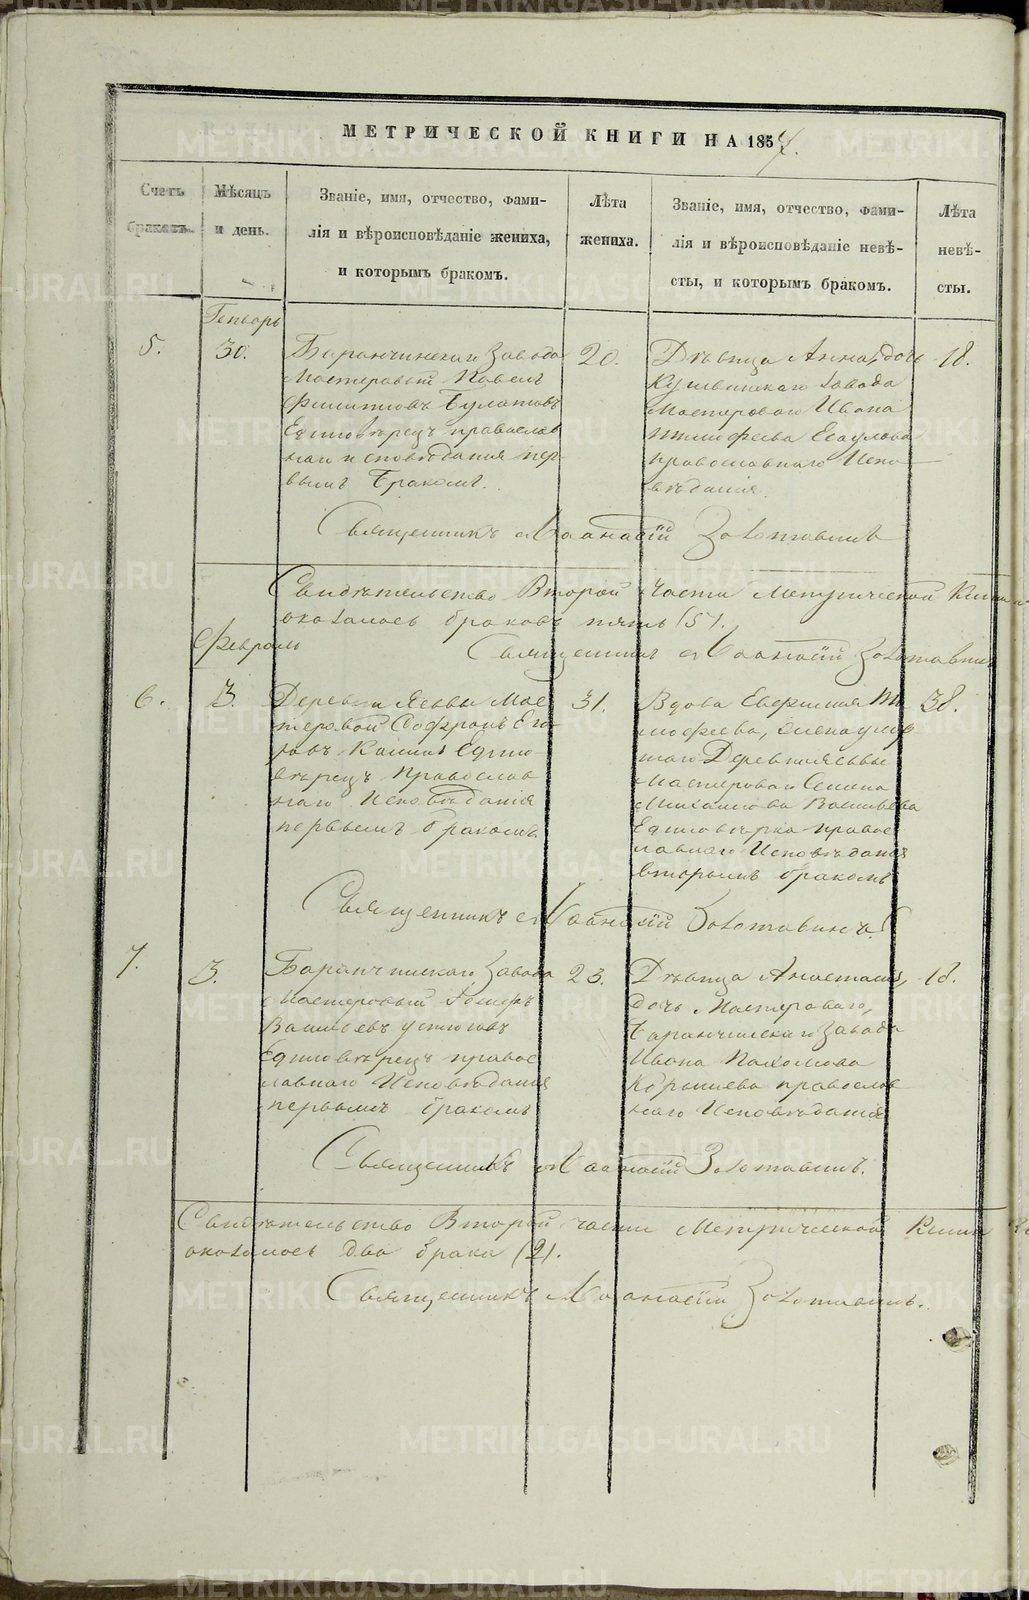 МЕТРИЧЕСКОЙ КНИГИ НА 1857.
Счетъ браковъ.
Мѣсяцъ и день.
Званіе, имя, отчество, фами-
лія и вѣроисповѣданіе жениха,
и которымъ бракомъ.
Лѣта
жениха.
Званіе, имя, отчество, фами-
лія и вѣроисповѣданіе невѣ-
сты, и которымъ бракомъ.
Лѣта
невѣ-
сты.
Генварь
5.
30.
Баранчинскаго Завода
Мастеровый Павелъ
Филиповъ Булатовъ
Единовѣрецъ православ
наго исповѣданія пер
вымъ бракомъ.
20.
Дѣвица Анна, дочь
Кушвинскаго Завода
Мастероваго Ивана
Тимофеева Есаулова
православнаго Испо
вѣданія.
18.
Священникъ Афанасій Золотавинъ
Свидѣтельство Второй части Метрической
оказалось браковъ пять (5).
Священникъ Афанасій Золотавинъ
Февраль
6.
3.
Деревни Ясьвы Мас
теровой Софронъ Его
ровъ Едино
вѣрецъ Православ
наго Исповѣданія
первымъ бракомъ.
31.
Вдова Евфимия Ти
мофеева, жена умер
шаго Деревни Ясьвы
Мастероваго Семена
Михаилова Васильева
Единовѣрка правос
лавнаго Исповѣданія
вторымъ бракомъ
38.
Священникъ Афанасій Золотавинъ
7.
3.
Баранчинскаго Завода
Мастеровый
Васильевъ Устюговъ
Единовѣрецъ правос
лавнаго Исповѣданія
первымъ бракомъ
23.
Дѣвица Анастасия,
дочь Мастероваго,
Баранчинскаго Завода
Ивана Пахомова
православ
наго Исповѣданія
18.
Священникъ Афанасій Золотавинъ.
Свидѣтельство Второй части Метрической
оказалось два брака (2).
Священникъ Афанасій Золотавинъ.
METRIKI.GASO-URAL.RU